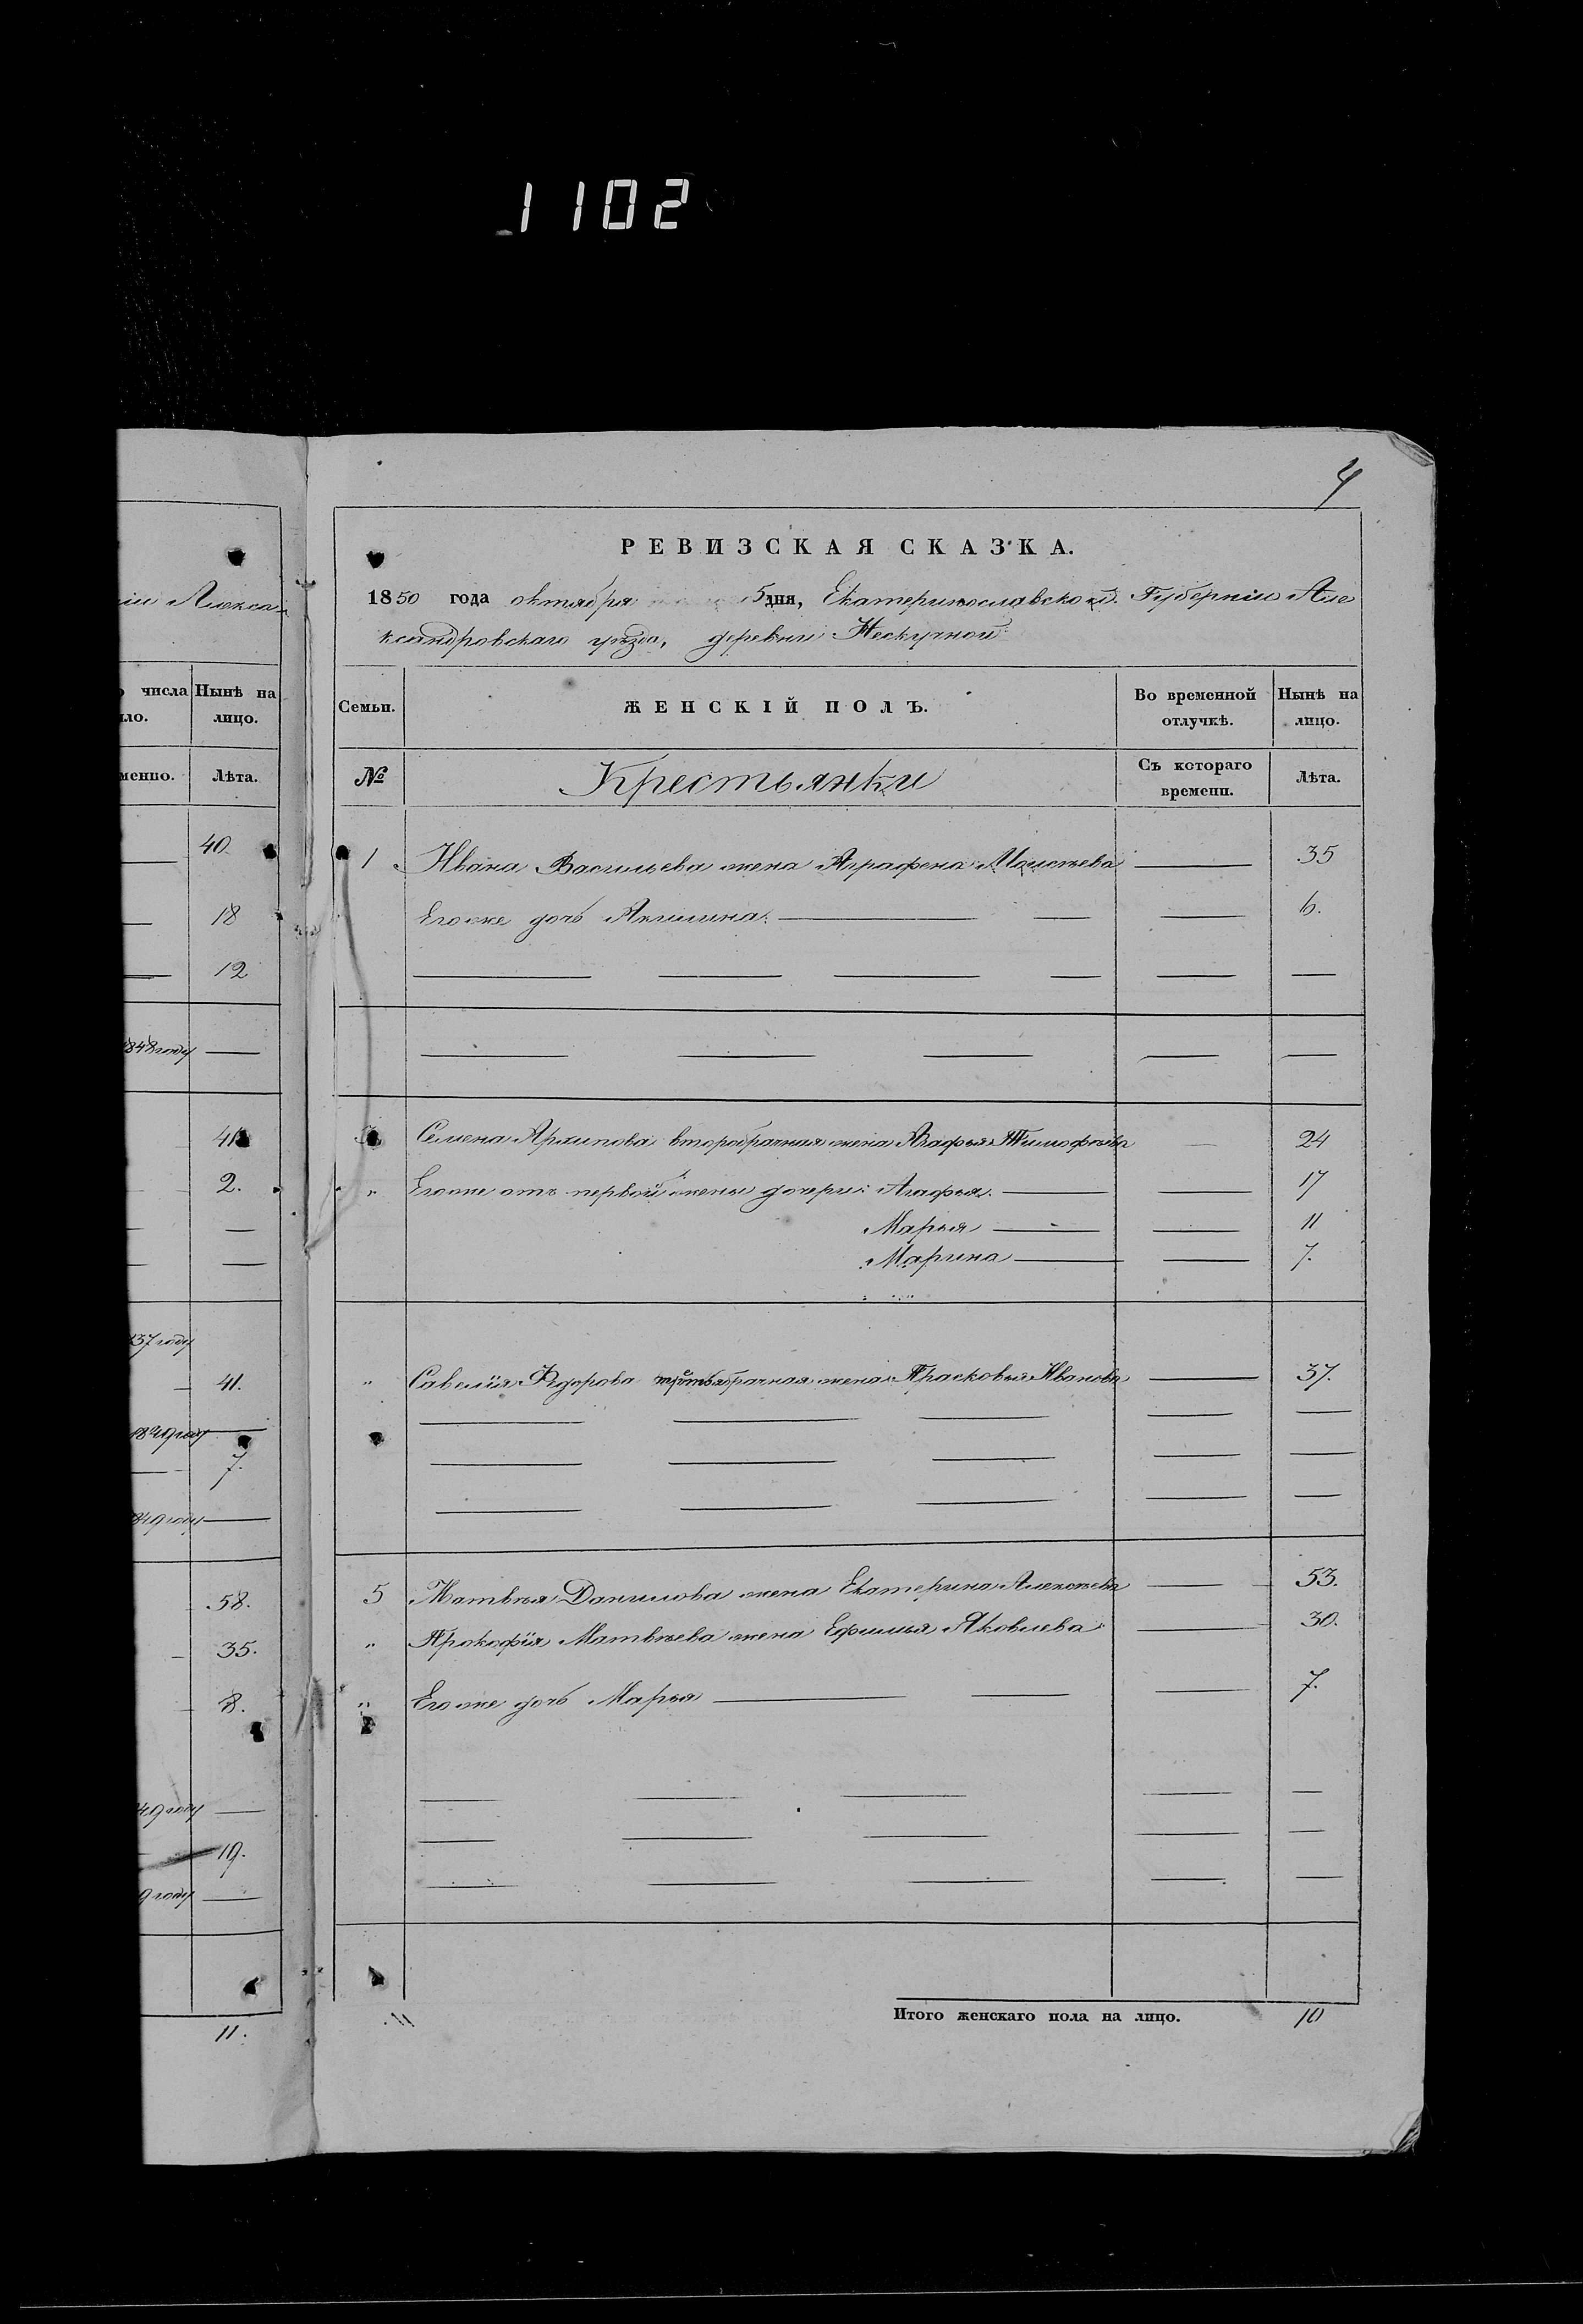 1102
4
іи Алекса-
РЕВИЗСКАЯ СКАЗКА.
1850 года октября 5 дня, Екатеринославской Губерніи Але
ксандровскаго уѣзда, деревни Нескучной
числа Нынѣ на
ло. лицо.
менно. Лѣта.
Семьи. ЖЕНСКІЙ ПОЛЪ. Во временной отлучкѣ. Нынѣ на лицо.
№ Крестьянки Съ котораго времени. Лѣта.
40
1 Ивана Васильева жена Аграфена Моисѣева — 35
18
Его же дочь Акилина — — — 6.
12
1848 году —
41
Семена Архипова второбрачная жена Агафья Тимофѣева — 24
2.
" Его же отъ первой жены дочери: Агафья — — 17
Марья — — 11
Марина — — 7.
837 году
41.
" Савелія Федорова третьебрачная жена Прасковья Иванова — 37.
1849 году —
7.
849 году —
58.
5 Матвѣя Данилова жена Екатерина Алексѣева — 53.
35.
" Прокофія Матвѣева жена Ефимья Яковлева — 30.
8.
" Его же дочь Марья — — — 7.
49 году —
19.
9 году —
11.
Итого женскаго пола на лицо. 10